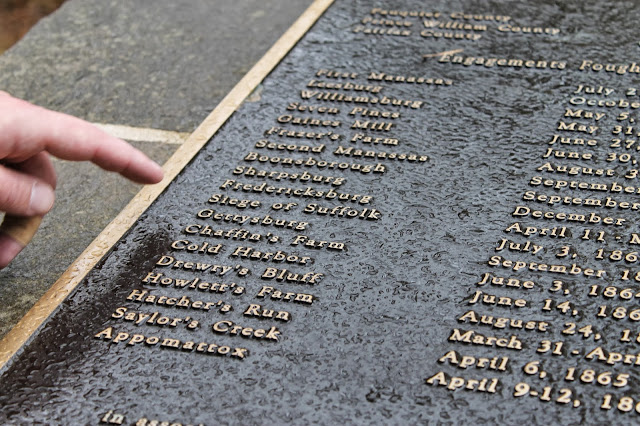 County
William County
Fairfax County
Engagements Fough
First Manassas
Leesburg
Williamsburg
Seven Pines
Gaines Mill
Frazer's Farm
Second Manassas
Boonsborough
Sharpsburg
Fredericksburg
Siege of Suffolk
Gettysburg
Chaffin's Farm
Cold Harbor
Drewry's Bluff
Howlett's Farm
Hatcher's Run
Saylor's Creek
Appomattox
July 2
October
May 5
May 31
June 27
June 30
August
September
September
December
April 11-M
July 3, 186
September 1
June 3, 186
June 14, 186
August 24, 1
March 31-Apri
April 6, 1865
April 9-12, 186
in asso